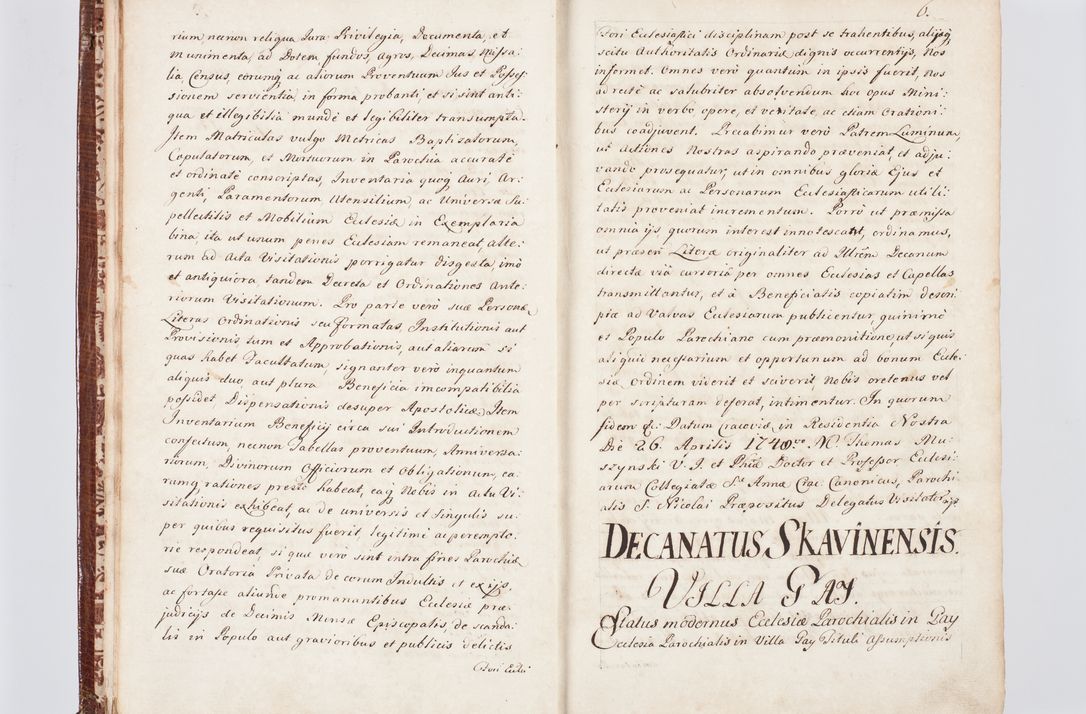 rium necnon reliqua Jura Privilegia, Documenta, et
munimenta, ad Dotem, fundos, agros, Decimas, Missa:
lia, Census, eorumq̃ ac aliorum Proventuum Jus et Posses:
sionem servientia, in forma probanti, et si sint anti:
qua et illegibilia mundè et legibiliter transumpta.
Item Matriculas vulgo Metricas Baptisatorum,
Copulatorum, et Mortuorum in Parochia accuratè
et ordinatè conscriptas, Inventaria quoq̃ Auri, Ar:
genti, Paramentorum Utensilium, ac Universæ Su:
pellectilis et Mobilium Ecclesiæ in Exemplaria
bina, ita ut unum penes Ecclesiam remaneat, alte:
rum ad Acta Visitationis porrigatur disgesta, imò
et antiquiora, tandem Decreta et Ordinationes Ante:
riorum Visitationum. Pro parte verò suæ Personæ
Literas Ordinationis seu formatas, Institutionis aut
Provisionis tum et Approbationis, aut aliarum si
quas habet Facultatum, signanter verò inquantum
aliquis duo, aut plura Beneficia incompatibilia
possidet, Dispensationis desuper Apostolicæ. Item
Inventarium Beneficij circa sui Introductionem
confectum, necnon Tabellas proventuum, Anniversa:
riorum, Divinorum Officiorum et Obligationum, ea:
rumq̃ rationes prestò habeat, eaq̃ Nobis in Actu Vi:
sitationis exhibeat, ac de universis et singulis su:
per quibus requisitus fuerit, legitimè ac perempto:
riè respondeat, si quæ verò sint intra fines Parochiæ
suæ Oratoria Privata de eorum Indultis et exijs,
ac fortasse aliunde promanantibus Ecclesiæ præ:
judicijs de Decimis Mensæ Episcopalis, de scanda:
lis in Populo aut gravioribus et publicis delictis
Fori Eccle:
6.
Fori Ecclesiastici disciplinam post se trahentibus, alijsq̃
scitu Authoritatis Ordinariæ dignis occurrentijs, Nos
informet. Omnes verò quantum in ipsis fuerit, Nos
ad rectè ac salubriter absolvendum hoc opus Mini:
sterij in verbo opere, et veritate, ac etiam Orationi:
bus coadjuvent. Precabimur verò Patrem Luminum,
ut Actiones Nostras aspirando præveniat, et adju:
vando prosequatur, ut in omnibus gloria Ejus et
Ecclesiarum ac Personarum Ecclesiasticarum utili:
tatis proveniat incrementum. Porrò ut præmissa
omnia ijs quorum interest innotescant, ordinamus,
ut præsen Literæ originaliter ad Decanum
directæ viâ cursoriâ per omnes Ecclesias et Capellas
transmittantur, et à Beneficiatis copiatim descri:
ptæ ad Valvas Ecclesiarum publicentur, quinimò
et Populo Parochiano cum præmonitione, ut si quis
aliquid necessarium et opportunum ad bonum Eccle:
siæ Ordinem viderit et sciverit Nobis oretenus vel
per scripturam deferat, intimentur. In quorum
fidem &. Datum Cracoviæ in Residentia Nostra
Die 26. Aprilis 1748vo. M. Thomas Mu:
szynski V. J. et Phiæ Doctor et Professor Eccles:
arum Collegiatæ Stæ Annæ Crac Canonicus, Parochi:
alis S. Nicolai Præpositus Delegatus Visitator
DECANATUS SKAVINENSIS.
VILLA GAY.
Status modernus Ecclesiæ Parochialis in Gay
Ecclesia Parochialis in Villa Gay Tituli Assumptionis